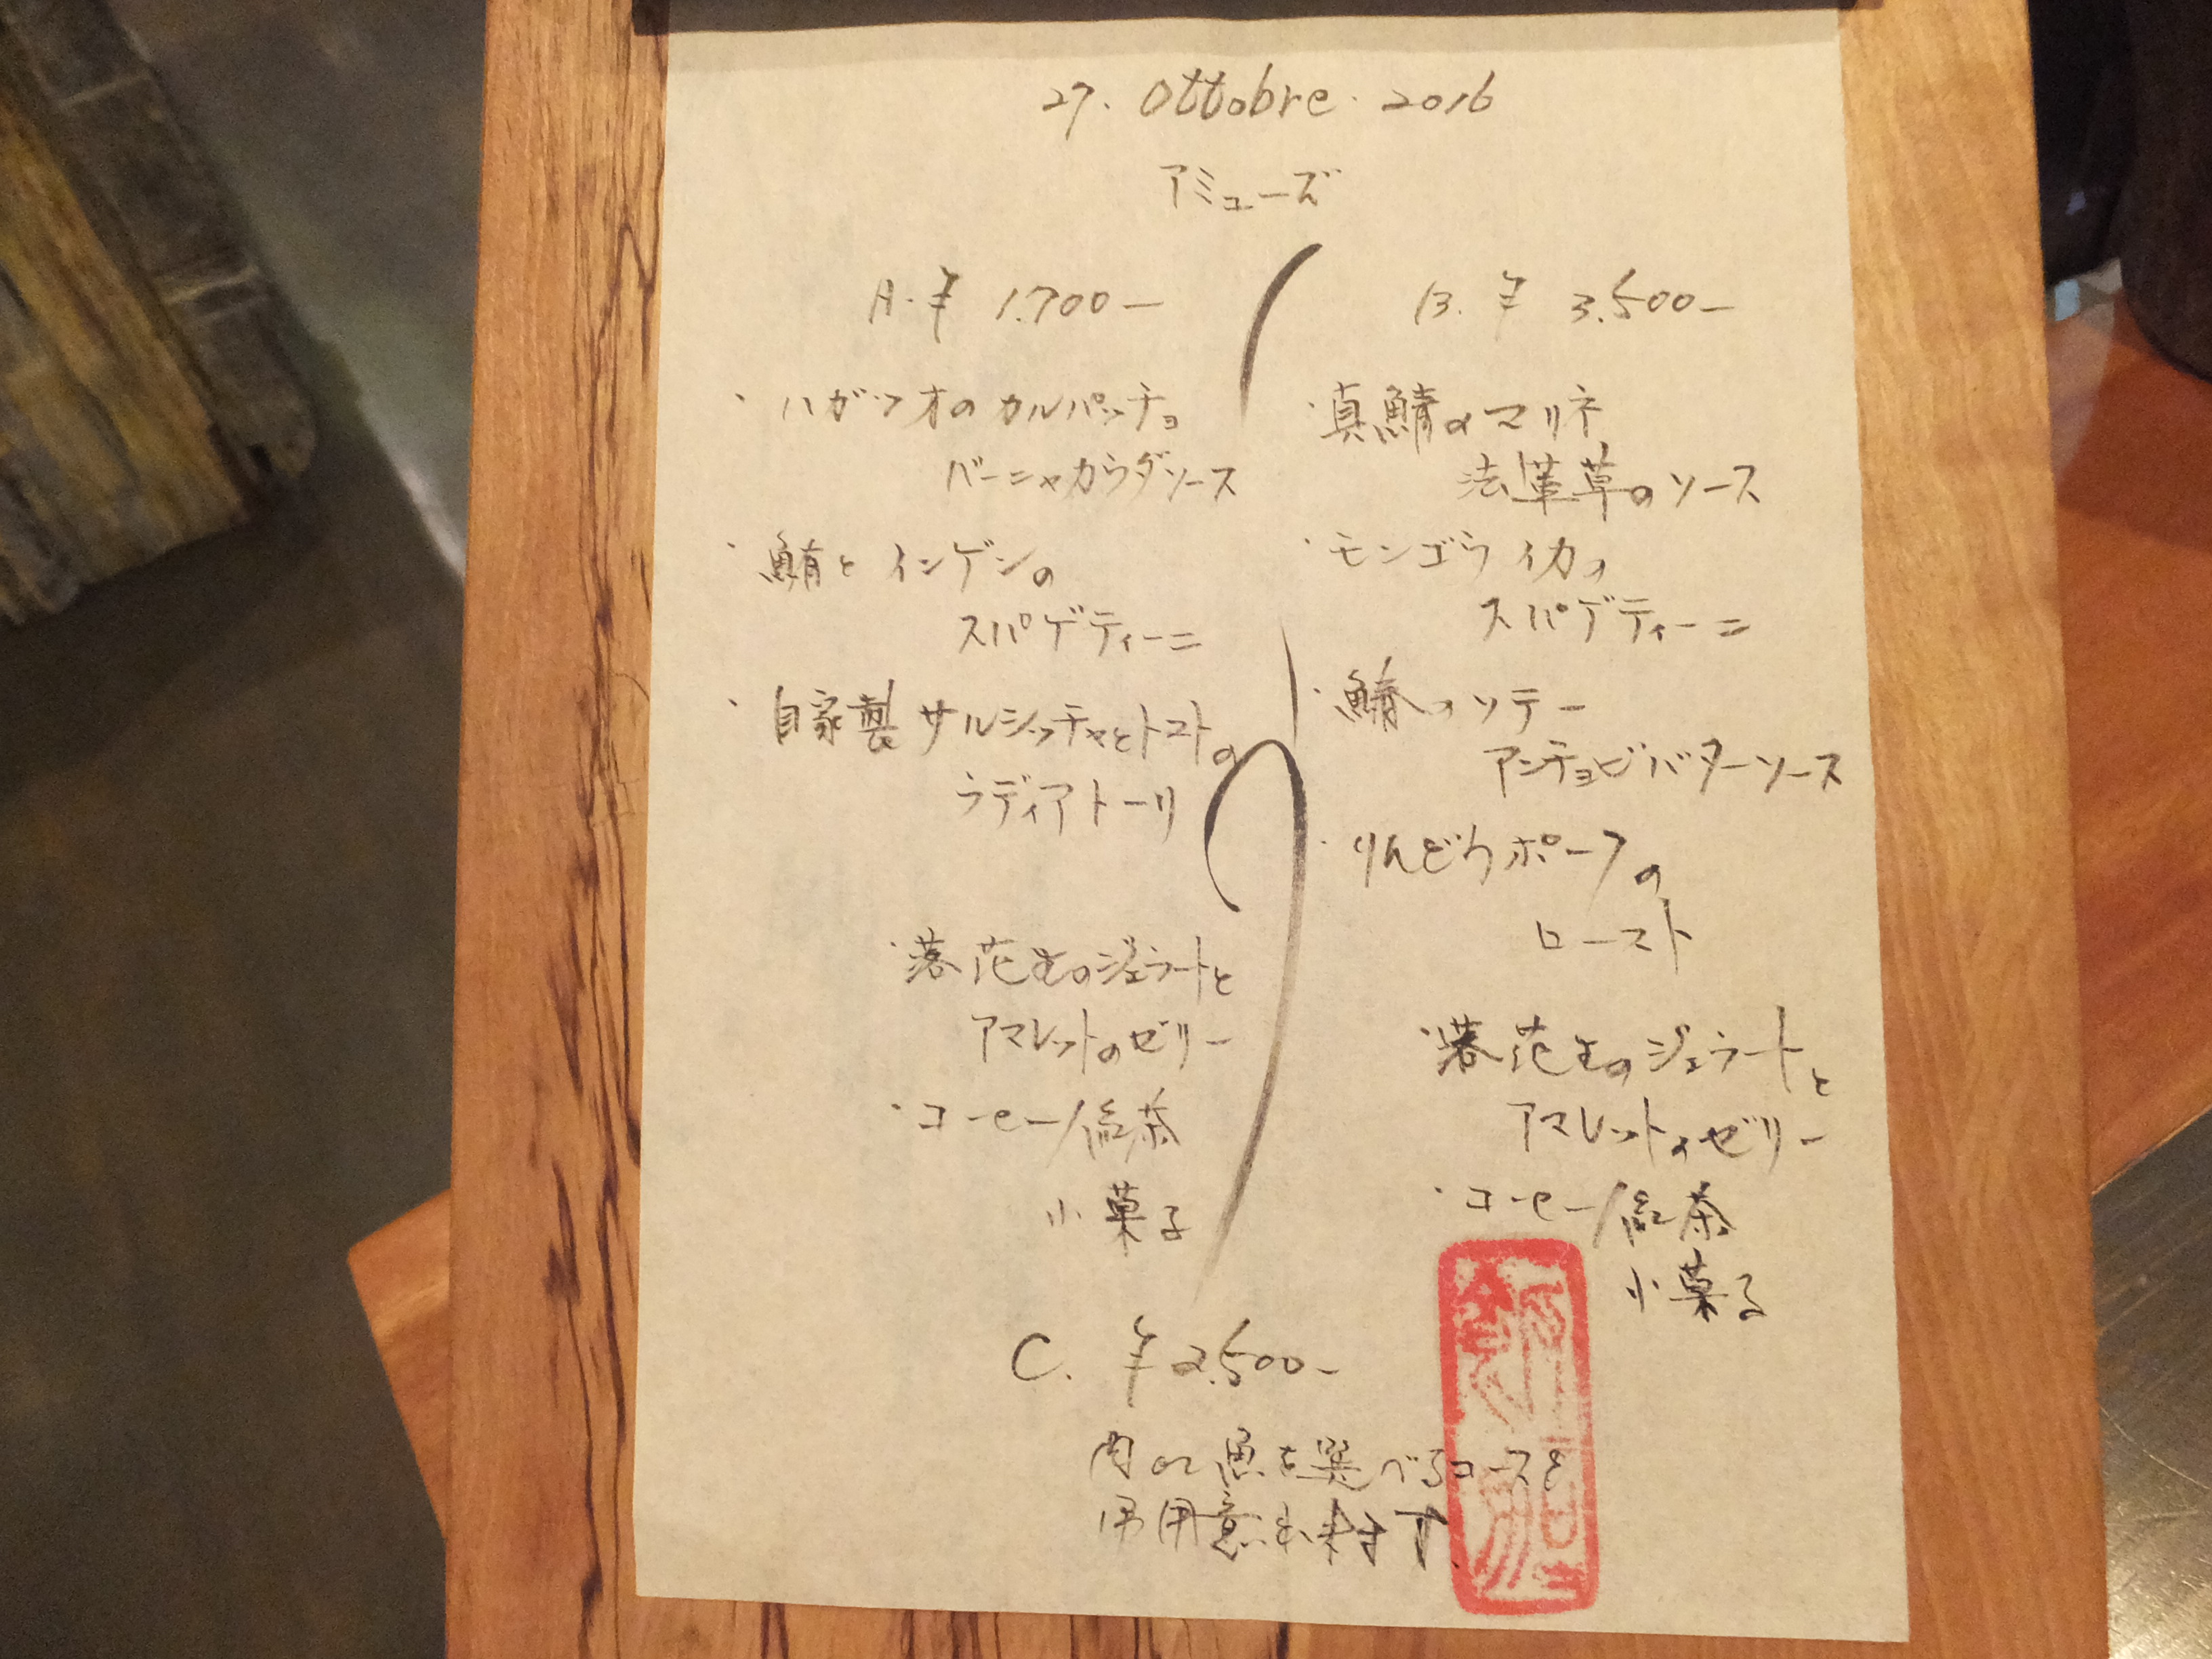 27. Ottobre. 2016
アミューズ
A. ¥ 1.700-
・ハガツオのカルパッチョ
バーニャカウダソース
・鮪とインゲンの
スパゲティーニ
・自家製サルシッチャとトマトの
ラディアトーリ
・落花生のジェラートと
アマレットのゼリー
・コーヒー/紅茶
小菓子
B. ¥ 3.500-
・真鯖のマリネ
法蓮草のソース
・モンゴウイカの
スパゲティーニ
・鰆のソテー
アンチョビバターソース
・りんどうポークの
ロースト
・落花生のジェラートと
アマレットのゼリー
・コーヒー/紅茶
小菓子
C. ¥2.500-
肉or魚を選べるコースを
用意出来ます.